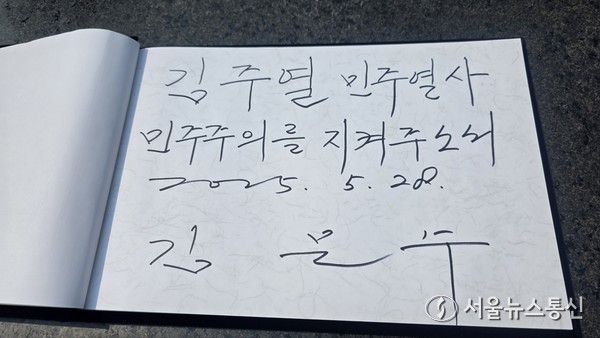 김주열 민주열사
민주주의를 지켜주소서
2025. 5. 28.
김 문 수
서울뉴스통신